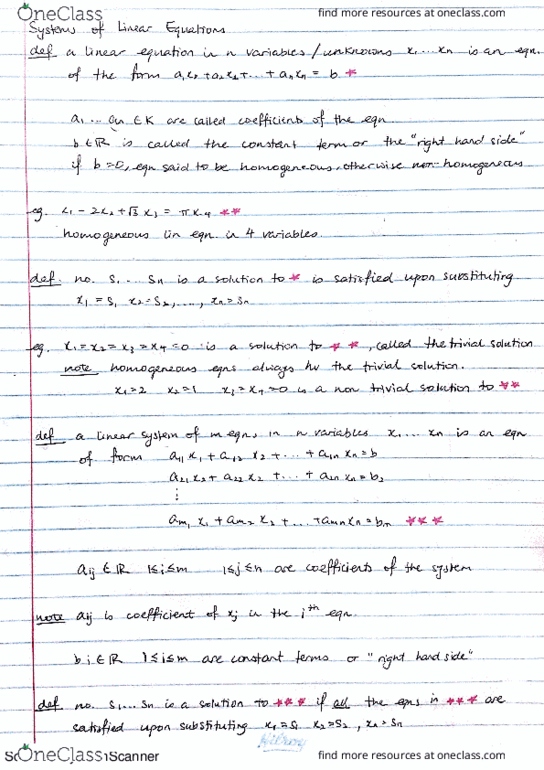 OneClass
find more resources at oneclass.com
Systems of Linear Equations
def a linear equation in n variables/unknowns x₁...xn is an eqn.
of the form a₁x₁+a₂x₂+...+anxn = b *
a₁ ... an ∈ K are called coefficients of the eqn
b ∈ ℝ is called the constant term or the "right hand side"
if b=0, eqn said to be homogeneous, otherwise non-homogeneous
eg. x₁ - 2x₂ + √3 x₃ = πx₄ **
homogeneous lin eqn. in 4 variables.
def. no. s₁... sn is a solution to * is satisfied upon substituting
x₁ = s₁ x₂=s₂, ..., xn=sn
eg. x₁=x₂=x₃=x₄=0 is a solution to **, called the trivial solution
note homogeneous eqns always hv the trivial solution.
x₁=2 x₂=1 x₃=x₄=0 is a non trivial solution to **
def a linear system of m eqns, in n variables x₁...xn is an eqn
of form a₁₁x₁+a₁₂ x₂+... + a₁n xn=b
a₂₁x₂+ a₂₂ x₂ +... + a₂n xn=b₂
⋮
am₁ x₁ +am₂ x₂ +... +amnxn=bn ***
aij ∈ ℝ 1≤i≤m 1≤j≤n are coefficients of the system
note aij is coefficient of xj in the iᵗʰ eqn.
bi∈ℝ 1≤i≤m are constant terms or "right hand side"
def no. s₁...sn is a solution to *** if all the eqns in *** are
satisfied upon substituting x₁=s₁ x₂=s₂, xn=sn
OneClass
Scanner
find more resources at oneclass.com